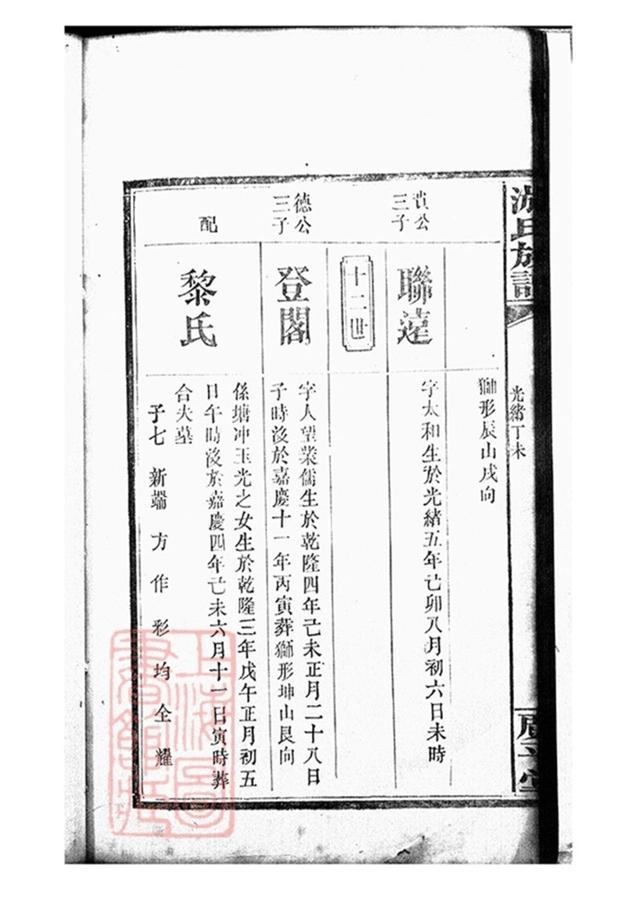 氏族譜
光緒丁未
獅形辰山戌向
貴公
三子
聯蓮
字太和生於光緒五年己卯八月初六日未時
十二世
德公
三子
登閣
字人望業儒生於乾隆四年己未正月二十八日
子時沒於嘉慶十一年丙寅葬獅形坤山艮向
配
黎氏
係塘冲玉光之女生於乾隆三年戊午正月初五
日午時沒於嘉慶四年己未六月十一日寅時葬
合夫墓
子七 新端 方 作 彩 均 全 耀